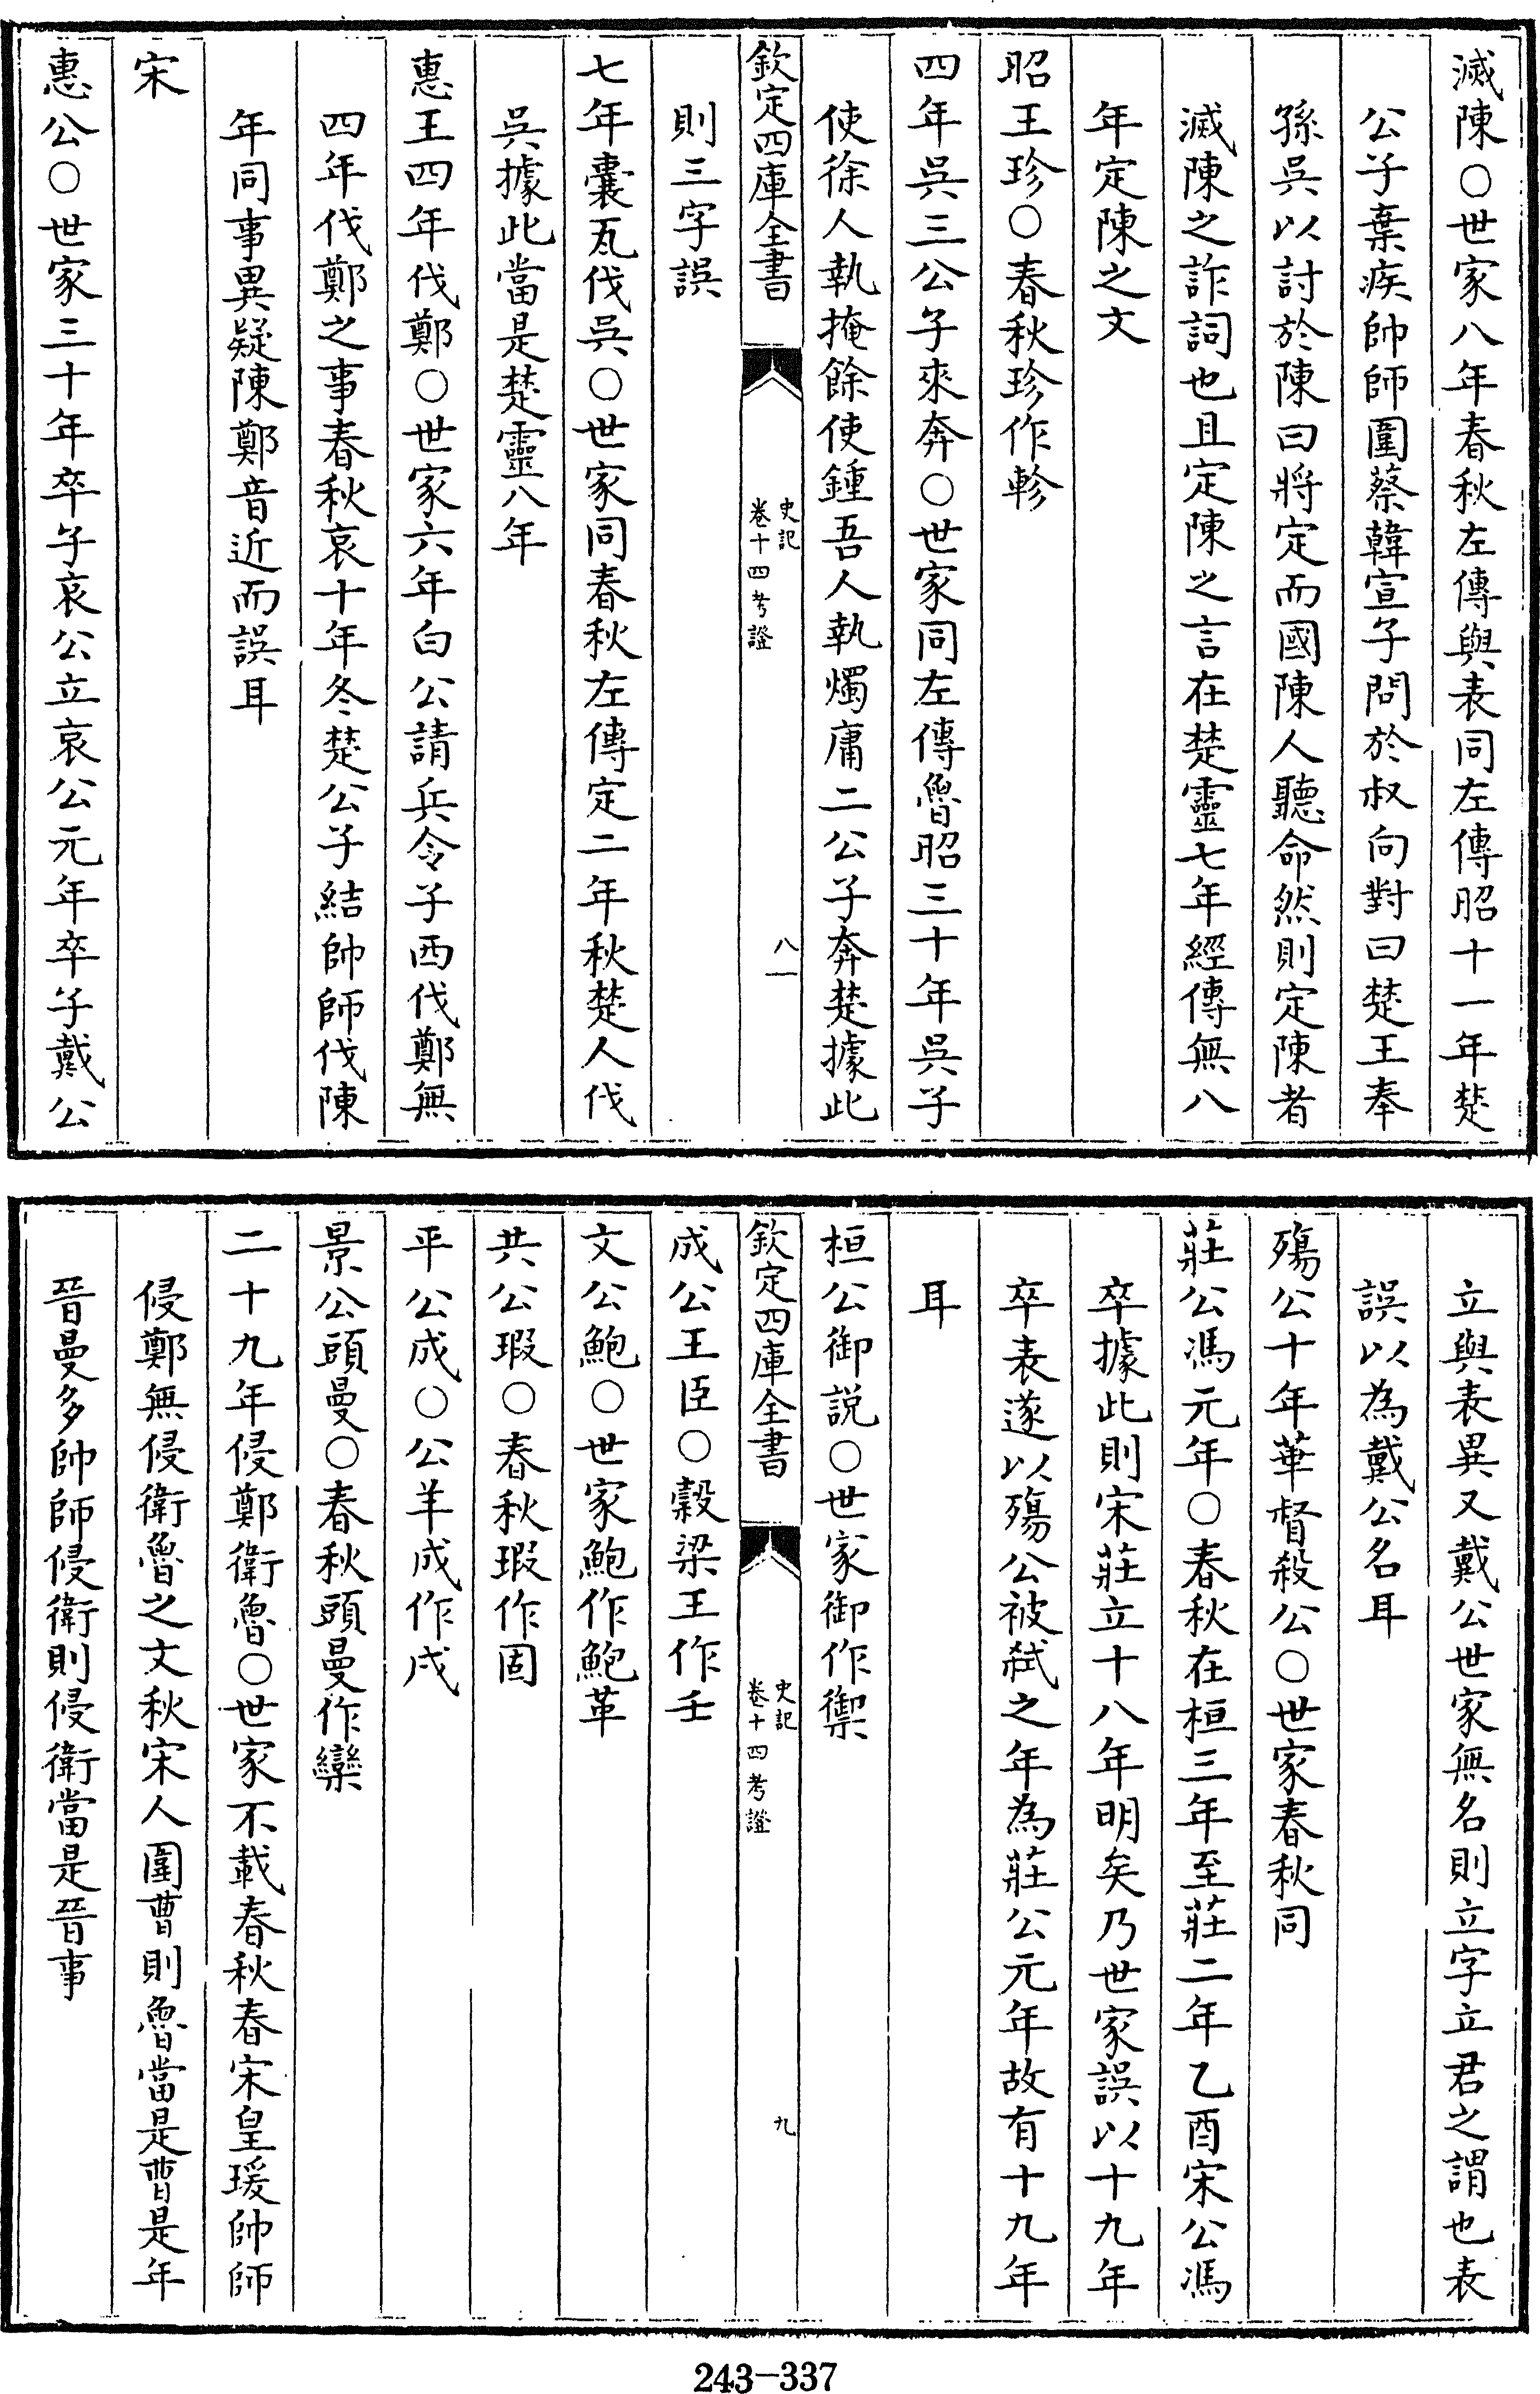 滅陳○世家八年春秋左傳與表同左傳昭十一年楚
公子棄疾帥師圍蔡韓宣子問於叔向對曰楚王奉
孫吳以討於陳曰將定而國陳人聽命然則定陳者
滅陳之詐詞也且定陳之言在楚靈七年經傳無八
年定陳之文
昭王珍○春秋珍作軫
四年吳三公子來奔○世家同左傳魯昭三十年吳子
使徐人執掩餘使鍾吾人執燭庸二公子奔楚據此
欽定四庫全書
史記
卷十四考證
八
則三字誤
七年囊瓦伐吳○世家同春秋左傳定二年秋楚人伐
吳據此當是楚靈八年
惠王四年伐鄭○世家六年白公請兵令子西伐鄭無
四年伐鄭之事春秋哀十年冬楚公子結帥師伐陳
年同事異疑陳鄭音近而誤耳
宋
惠公○世家三十年卒子哀公立哀公元年卒子戴公
立與表異又戴公世家無名則立字立君之謂也表
誤以為戴公名耳
殤公十年華督殺公○世家春秋同
莊公馮元年○春秋在桓三年至莊二年乙酉宋公馮
卒據此則宋莊立十八年明矣乃世家誤以十九年
卒表遂以殤公被弒之年為莊公元年故有十九年
耳
桓公御說○世家御作禦
欽定四庫全書
史記
卷十四考證
九
成公王臣○穀梁王作壬
文公鮑○世家鮑作鮑革
共公瑕○春秋瑕作固
平公成○公羊成作戌
景公頭曼○春秋頭曼作欒
二十九年侵鄭衛魯○世家不載春秋春宋皇瑗帥師
侵鄭無侵衛魯之文秋宋人圍曹則魯當是曹是年
晉曼多帥師侵衛則侵衛當是晉事
243-337